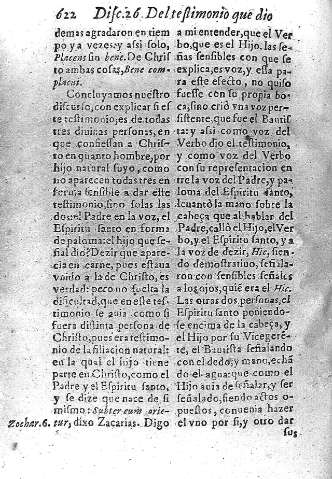 622 Disc.26. Del testimonio que dio
demas agradaron en tiem
po y a vezes: y asi solo,
Placens sin bene. De Chris
to ambas cosas, Bene com-
placui.
Concluyamos nuestro
discurso, con explicar si es
te testimonio, es de todas
tres diuinas personas, en
que confiessan a Chris-
to en quanto hombre, por
hijo natural suyo, como
no aparecen todas tres en
forma sensible a dar este
testimonio, sino solas las
dos: el Padre en la voz, el
Espiritu santo en forma
de paloma: el hijo que se-
ñal dio? Dezir que apare-
cia en carne, pues estaua
vnido a la de Christo, es
verdad: pero no suelta la
dificultad, que en este tes-
timonio se auia como si
fuera distinta persona de
Christo, pues era testimo-
nio de la filiacion natural:
en la qual el hijo tiene
parte en Christo, como el
Padre y el Espiritu santo,
y se dize que nace de si
mismo: Subter eum orie-
Zachar.6. tur, dixo Zacarias. Digo
a mi entender, que el Ver
bo, que es el Hijo, las se-
ñas sensibles con que se
explica, es voz, y essa pa
ra este efecto, no quiso
fuesse con su propia bo-
ca, sino crió vna voz per-
sistente, que fue el Bautis
ta: y asi como voz del
Verbo dio el testimonio,
y como voz del Verbo
con su representacion en
tre la voz del Padre, y pa-
loma del Espiritu santo,
leuantó la mano sobre la
cabeça que al hablar del
Padre, calló el Hijo, el Ver
bo, y el Espiritu santo, y a
la voz de dezir, Hic, sien-
do demostratiuo, señala-
ron con sensibles señales
a los ojos, quié era el Hic.
Las otras dos personas, el
Espiritu santo poniendo-
se encima de la cabeça, y
el Hijo por su Vicegeré-
te, el Bautista señalando
con el dedo, y mano, echá
do el agua: que como el
Hijo auia de señalar, y ser
señalado, siendo actos o-
puestos, conuenia hazer
el vno por si, y otro dar
sus